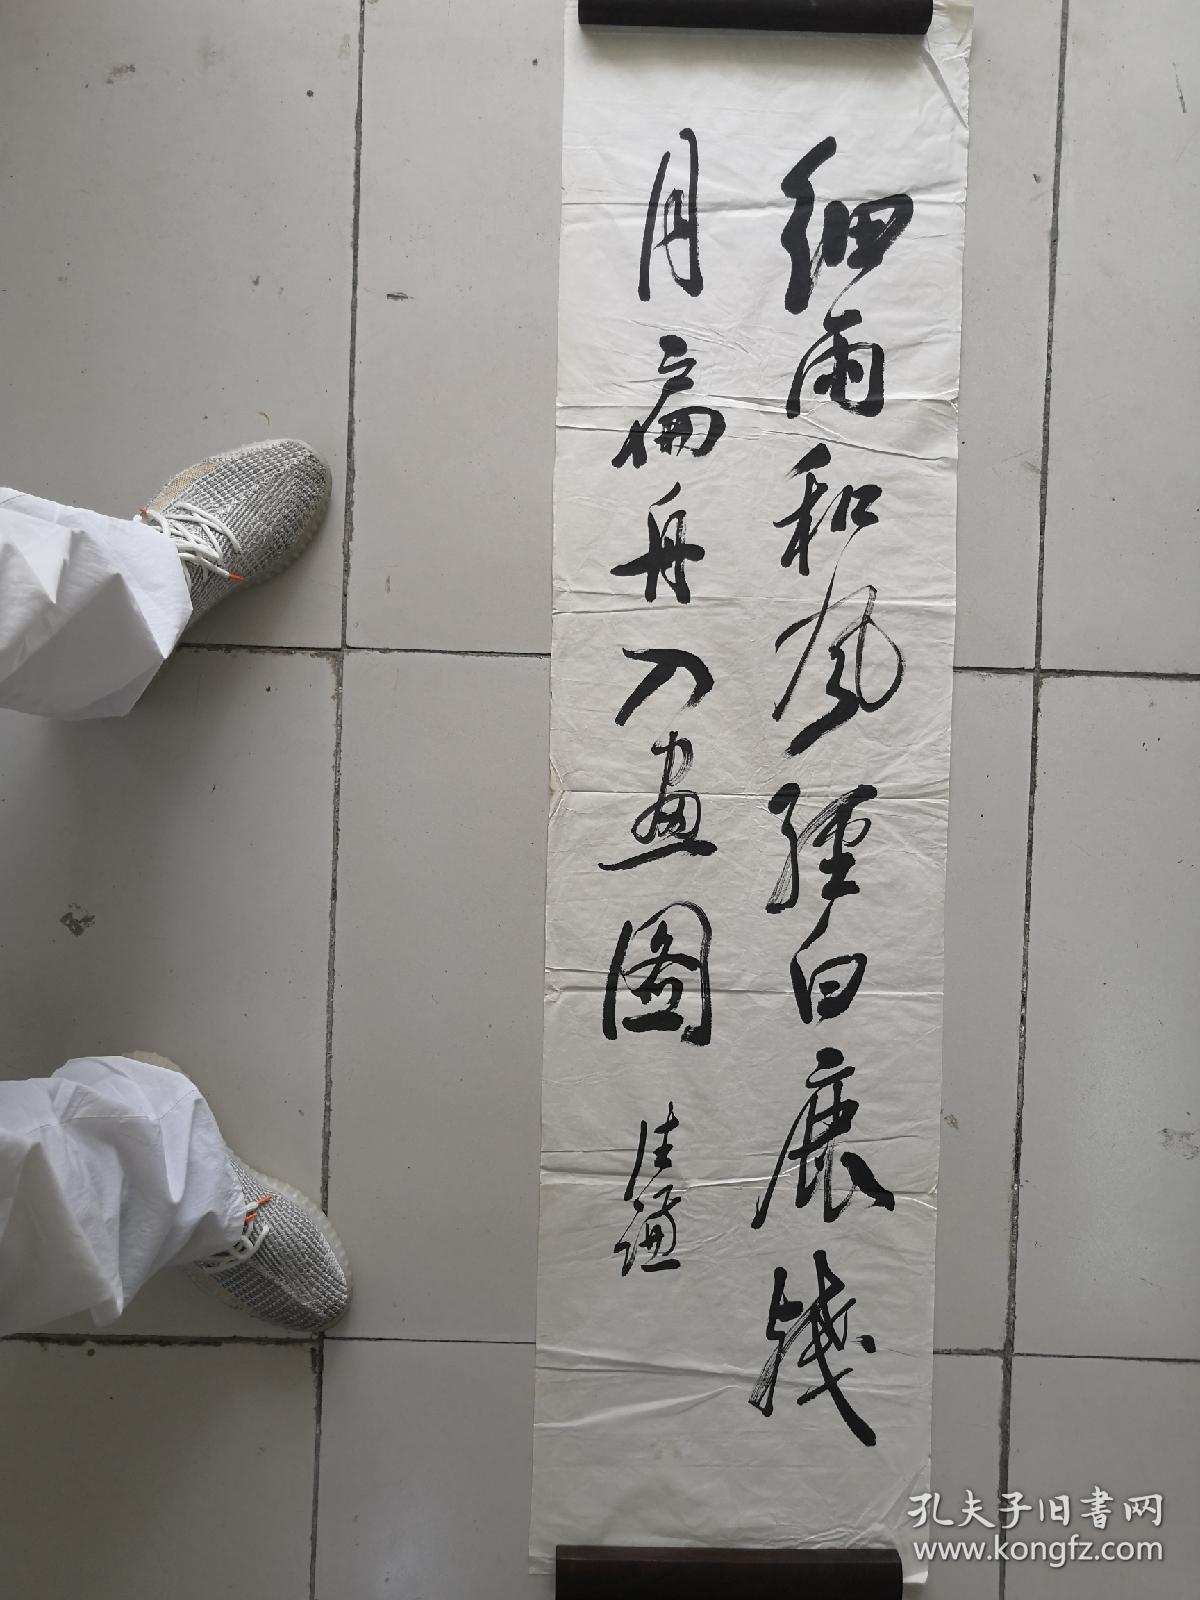 细雨和风经白鹿残
月扁舟入画图
佳谦
孔夫子旧书网
www.kongfz.com